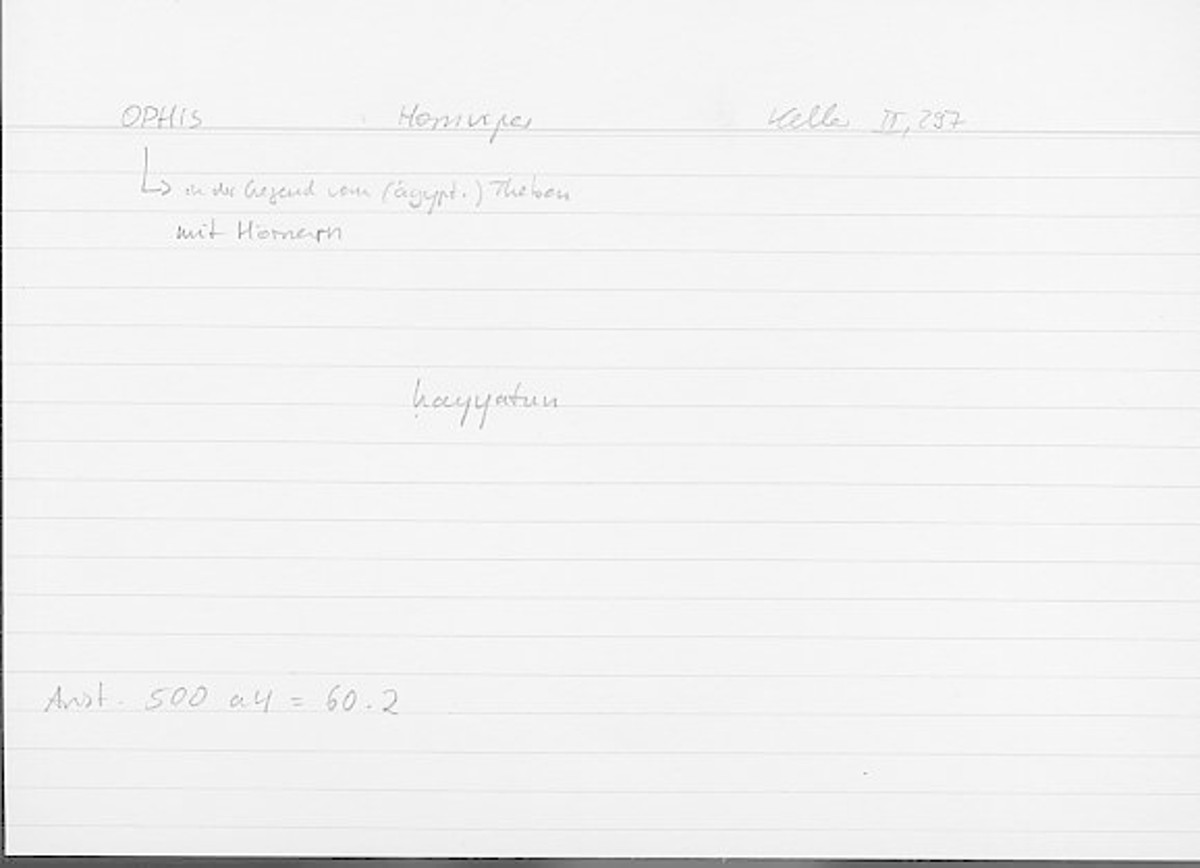 OPHIS Hornviper Keller II, 297
↳ in der Gegend vom (ägypt.) Theben
mit Hörnern
ḥayyatun
Arist. 500 a4 = 60.2